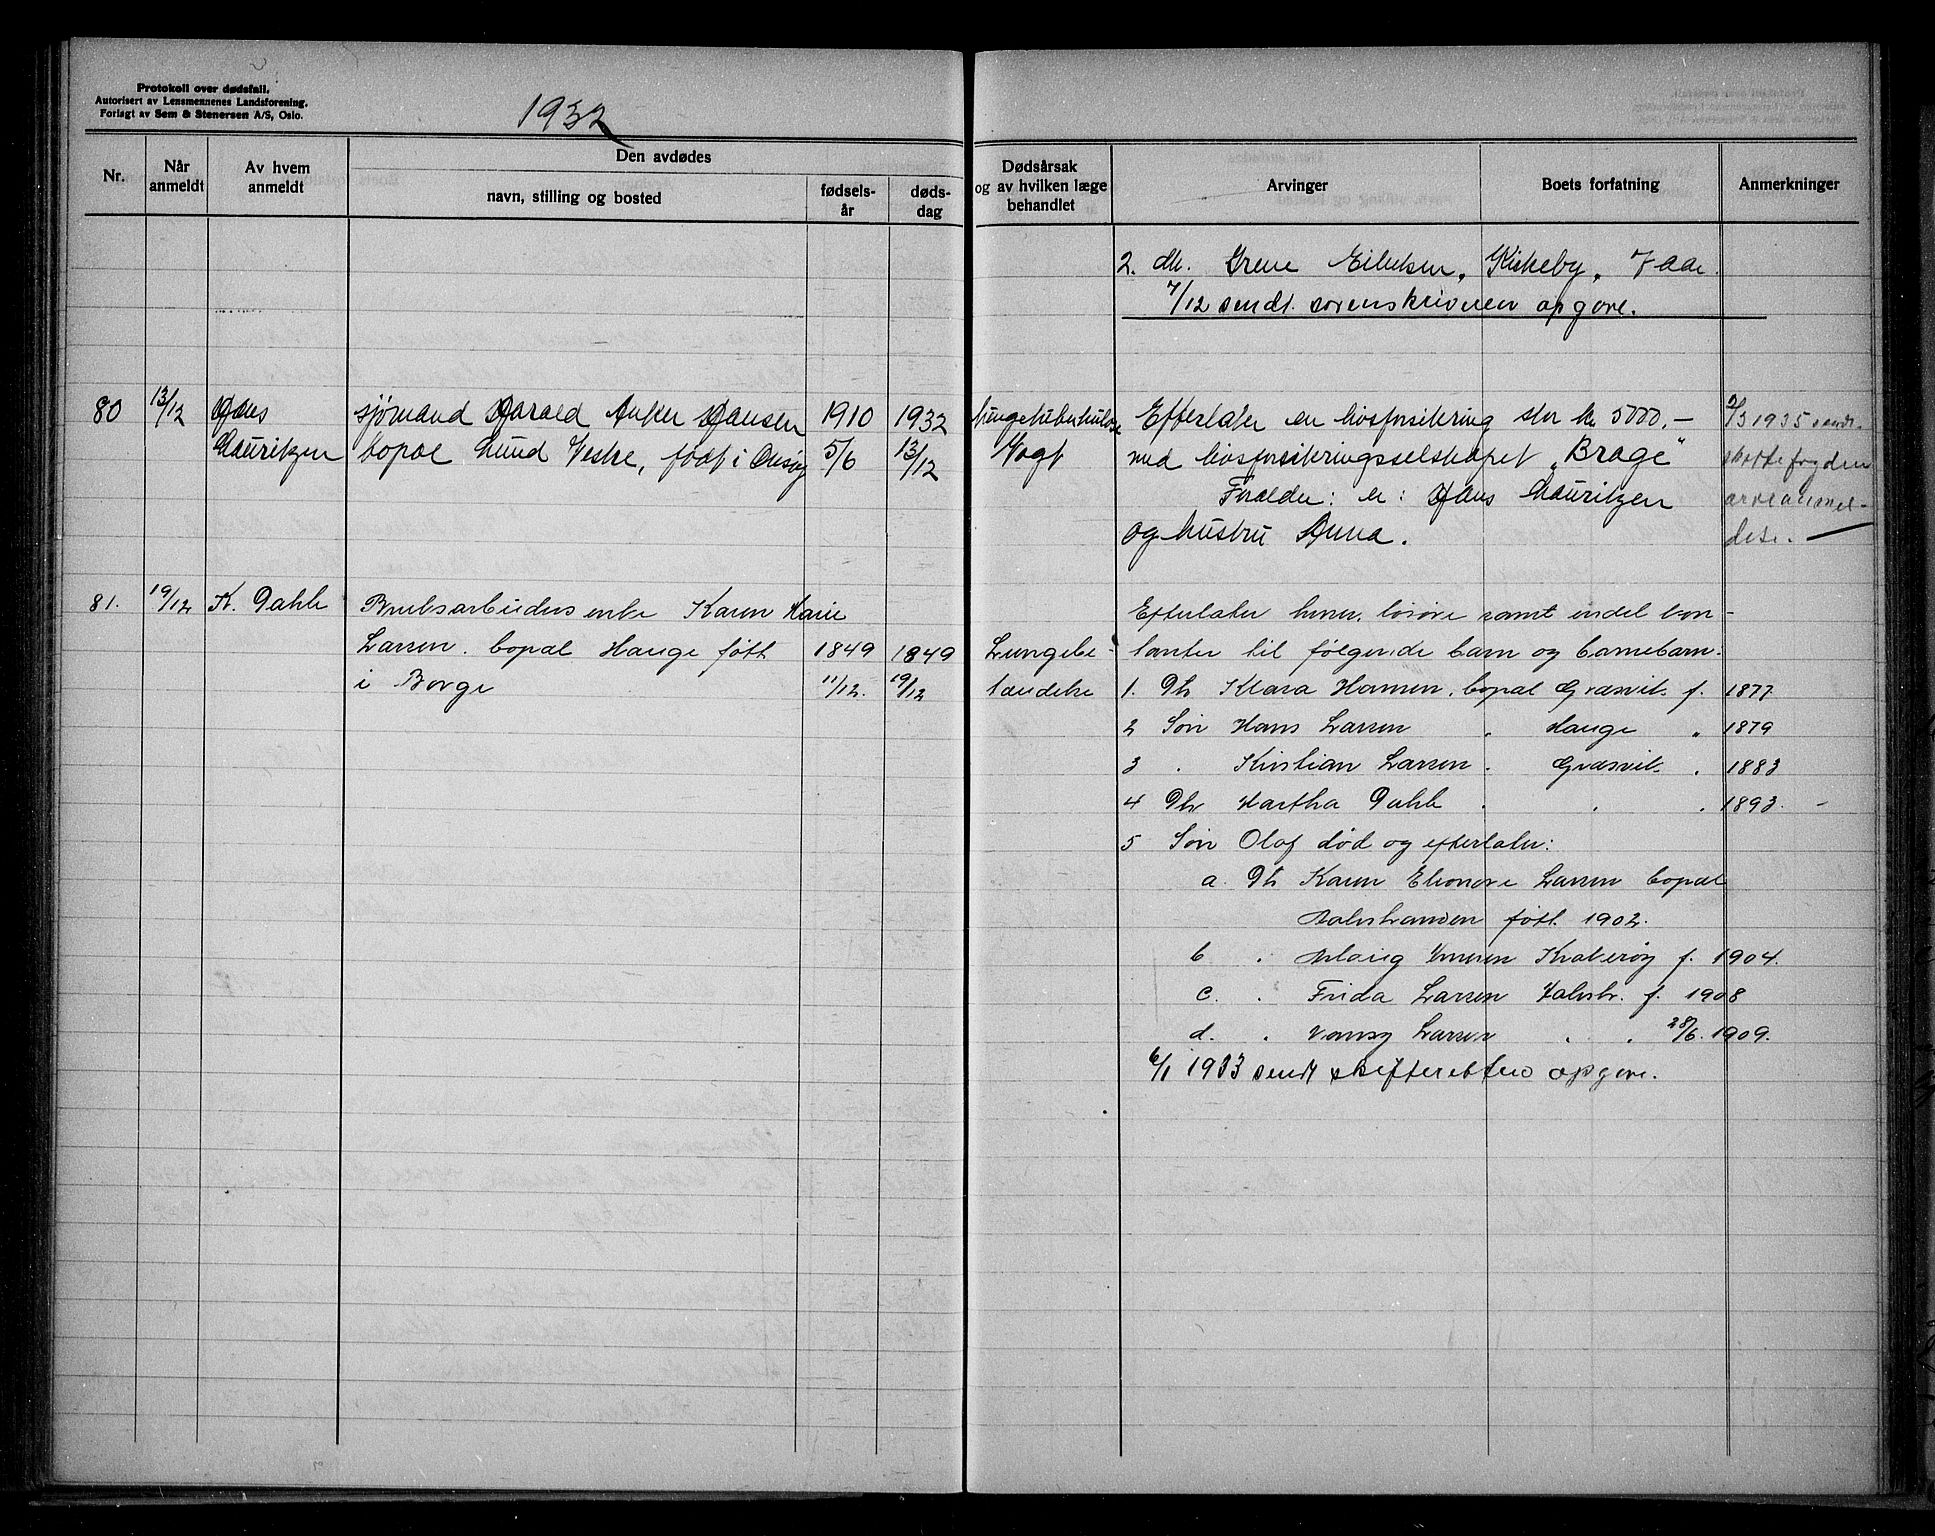 Protokoll over dødsfall.
Autorisert av Lensmennenes Landsforening.
Forlagt av Sem & Stenersen A/S, Oslo.
1932
Nr.
Når anmeldt
Av hvem anmeldt
Den avdødes
navn, stilling og bosted
fødsels-år
døds-dag
Dødsårsak og av hvilken læge behandlet
Arvinger
Boets forfatning
Anmerkninger
2. dtr. Irene Eilertsen, Kirkeby, 7 aar.
7/12 sendt sorenskriveren opgave.
80 13/12 Hans sjømand Harald Anker Hansen 1910 1932 Lungetuberkulose Efterlater en livsforsikring stor kr 5000,- 2/3 1935 sendt
Lauritzen bopæl Lund Vestre, født i Onsøy 5/6 13/12 Vogt med livsforsikringsselskapet „Brage" skattefogden
Forældre: er: Hans Lauritzen arveanmel-
og hustru Anna. delse.
81. 19/12 K. Dahle Bruksarbeiders enke Karen Marie Efterlater huser, løsøre samt endel kon-
Larsen. bopæl Hauge født 1849 1849 Lungebe- tanter til følgende barn og barnebarn.
i Borge 11/12. 19/12 tændelse 1. Dtr Klara Hansen, bopæl Græsvik f. 1877.
2 Søn Hans Larsen " Hauge " 1879
3 " Kristian Larsen " Græsvik " 1883
4 Dtr Martha Dahle " " " 1893. -
5 Søn Olaf død og efterlater:
a. Dtr Karen Elionore Larsen bopæl
født 1902.
b " Iversen Kråkerøy f. 1904.
c. " Frida Larsen f. 1908
d. " Larsen " " 28/6. 1909.
6/1 1933 sendt skifteretten opgave.